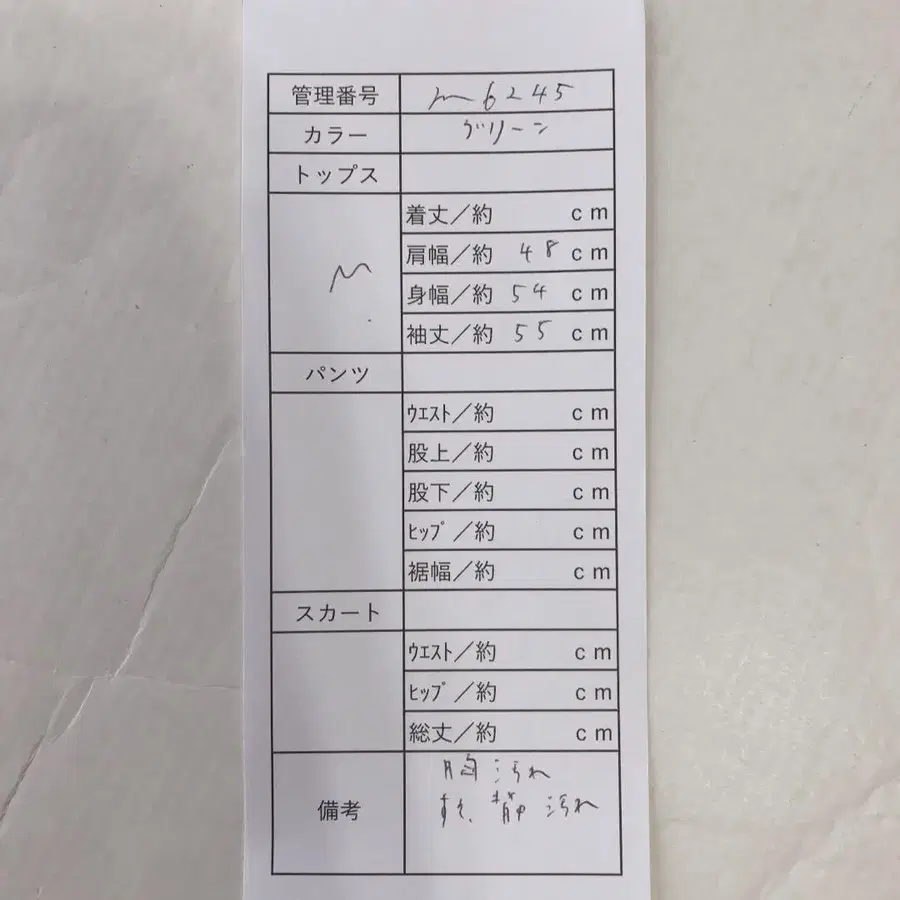 管理番号 m6245
カラー グリーン
トップス
M
着丈／約 cm
肩幅／約 48 cm
身幅／約 54 cm
袖丈／約 55 cm
パンツ
ｳｴｽﾄ／約 cm
股上／約 cm
股下／約 cm
ﾋｯﾌﾟ／約 cm
裾幅／約 cm
スカート
ｳｴｽﾄ／約 cm
ﾋｯﾌﾟ／約 cm
総丈／約 cm
備考
胸汚れ
すそ、汚れ